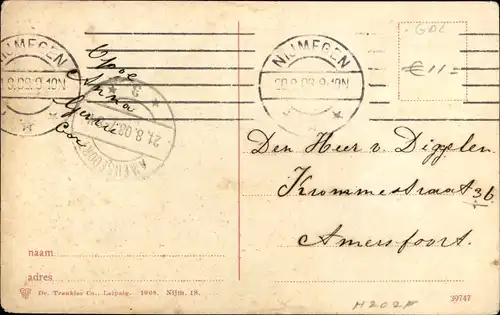 NIJMEGEN
20.8.08.9-10N
NIJMEGEN
8.08.9-10N
GDL
€ 11-
21.8.08.
AMERSFOORT
Anna
Den Heer v. Digglen
Krommestraat 36
Amersfoort.
naam
adres
Dr. Trenkler Co., Leipzig. 1908. Nijm. 18.
H202F
39747